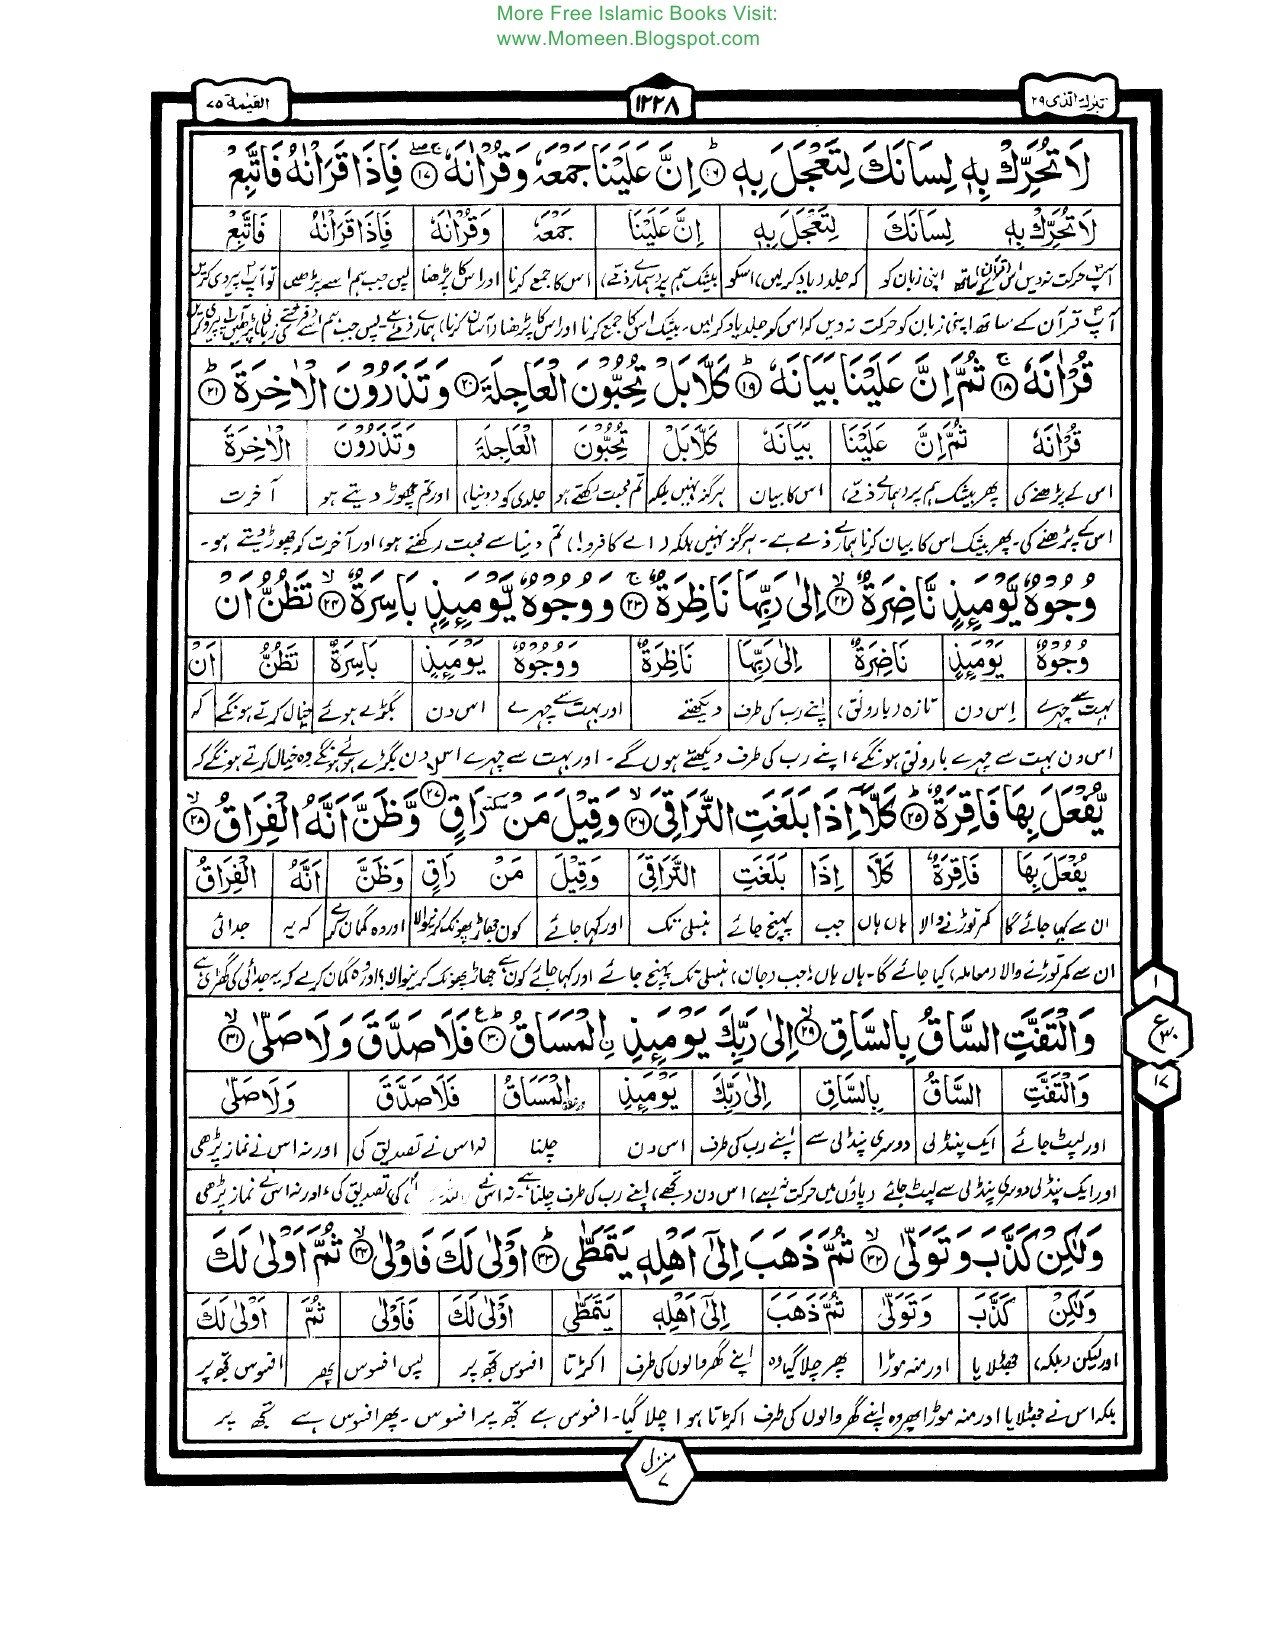 More Free Islamic Books Visit:
www.Momeen.Blogspot.com
تبٰرك الذی ٢٩ ١٢٢٨ القیٰمة ٧٥
لَا تُحَرِّكْ بِهٖ لِسَانَكَ لِتَعْجَلَ بِهٖ ؕ﴿١٦﴾ اِنَّ عَلَیْنَا جَمْعَهٗ وَ قُرْاٰنَهٗ ﴿١٧﴾ فَاِذَا قَرَاْنٰهُ فَاتَّبِعْ
لَا تُحَرِّكْ بِهٖ لِسَانَكَ لِتَعْجَلَ بِهٖ اِنَّ عَلَیْنَا جَمْعَهٗ وَقُرْاٰنَهٗ فَاِذَا قَرَاْنٰهُ فَاتَّبِعْ
آپؐ حرکت نہ دیں اس (قرآن) کے ساتھ اپنی زبان کو کہ جلد (یاد کرلیں) اسکو بیشک ہم پر (ہمارے ذمے) اس کا جمع کرنا اور اس کا پڑھنا پس جب ہم اسے پڑھیں تو آپؐ پیروی کریں
آپؐ قرآن کے ساتھ اپنی زبان کو حرکت نہ دیں کہ اس کو جلد یاد کرلیں۔ بیشک اس کا جمع کرنا اور اس کا پڑھنا (آسان کرنا) ہمارے ذمے ہے۔ پس جب ہم اسے (فرشتے کی زبانی) پڑھیں آپؐ پیروی کریں
قُرْاٰنَهٗ ۚ﴿١٨﴾ ثُمَّ اِنَّ عَلَیْنَا بَیَانَهٗ ؕ﴿١٩﴾ كَلَّا بَلْ تُحِبُّوْنَ الْعَاجِلَةَ ﴿٢٠﴾ وَ تَذَرُوْنَ الْاٰخِرَةَ ؕ﴿٢١﴾
قُرْاٰنَهٗ ثُمَّ اِنَّ عَلَیْنَا بَیَانَهٗ كَلَّا بَلْ تُحِبُّوْنَ الْعَاجِلَةَ وَ تَذَرُوْنَ الْاٰخِرَةَ
اس کے پڑھنے کی پھر بیشک ہم پر (ہمارے ذمے) اس کا بیان ہرگز نہیں بلکہ تم محبت رکھتے ہو جلدی کو (دنیا) اور تم چھوڑ دیتے ہو آخرت
اس کے پڑھنے کی۔ پھر بیشک اس کا بیان کرنا ہمارے ذمے ہے۔ ہرگز نہیں بلکہ (اے کافرو!) تم دنیا سے محبت رکھتے ہو، اور آخرت کو چھوڑ دیتے ہو۔
وُجُوْهٌ یَّوْمَىِٕذٍ نَّاضِرَةٌ ۙ﴿٢٢﴾ اِلٰى رَبِّهَا نَاظِرَةٌ ۚ﴿٢٣﴾ وَ وُجُوْهٌ یَّوْمَىِٕذٍۭ بَاسِرَةٌ ۙ﴿٢٤﴾ تَظُنُّ اَنْ
وُجُوْهٌ یَوْمَىِٕذٍ نَاضِرَةٌ اِلٰى رَبِّهَا نَاظِرَةٌ وَوُجُوْهٌ یَوْمَىِٕذٍ بَاسِرَةٌ تَظُنُّ اَنْ
بہت سے چہرے اس دن تازہ (بارونق) اپنے رب کی طرف دیکھتے اور بہت سے چہرے اس دن بگڑے ہوئے خیال کرتے ہونگے کہ
اس دن بہت سے چہرے بارونق ہونگے، اپنے رب کی طرف دیکھتے ہوں گے۔ اور بہت سے چہرے اس دن بگڑے ہوئے ہونگے وہ خیال کرتے ہونگے کہ
یُّفْعَلَ بِهَا فَاقِرَةٌ ؕ﴿٢٥﴾ كَلَّاۤ اِذَا بَلَغَتِ التَّرَاقِیَ ۙ﴿٢٦﴾ وَ قِیْلَ مَنْ سكتة رَاقٍ ۙ﴿٢٧﴾ وَّ ظَنَّ اَنَّهُ الْفِرَاقُ ۙ﴿٢٨﴾
یُفْعَلَ بِهَا فَاقِرَةٌ كَلَّا اِذَا بَلَغَتِ التَّرَاقِیَ وَقِیْلَ مَنْ رَاقٍ وَظَنَّ اَنَّهُ الْفِرَاقُ
ان سے کہا جائے گا کمر توڑنے والا ہاں ہاں جب پہنچ جائے ہنسلی تک اور کہا جائے کون جھاڑ پھونک کرنیوالا اور وہ گمان کرے کہ یہ جدائی
ان سے کمر توڑنے والا (معاملہ) کیا جائے گا۔ ہاں ہاں! جب (جان) ہنسلی تک پہنچ جائے اور کہا جائے کون ہے جھاڑ پھونک کرنیوالا؟ اور وہ گمان کرے کہ یہ جدائی کی گھڑی ہے
وَ الْتَفَّتِ السَّاقُ بِالسَّاقِ ۙ﴿٢٩﴾ اِلٰى رَبِّكَ یَوْمَىِٕذِ ِ۟الْمَسَاقُ ؕ ع ﴿٣٠﴾ فَلَا صَدَّقَ وَ لَا صَلّٰى ۙ﴿٣١﴾
١
ع ٣٠
١٧
وَالْتَفَّتِ السَّاقُ بِالسَّاقِ اِلٰى رَبِّكَ یَوْمَىِٕذِ الْمَسَاقُ فَلَا صَدَّقَ وَلَا صَلّٰى
اور لپٹ جائے ایک پنڈلی دوسری پنڈلی سے اپنے رب کی طرف اس دن چلنا نہ اس نے تصدیق کی اور نہ اس نے نماز پڑھی
اور ایک پنڈلی دوسری پنڈلی سے لپٹ جائے (پاؤں میں حرکت نہ رہے) اس دن (تجھے) اپنے رب کی طرف چلنا ہے۔ نہ اس نے کی تصدیق کی، اور نہ اس نے نماز پڑھی
وَ لٰكِنْ كَذَّبَ وَ تَوَلّٰى ۙ﴿٣٢﴾ ثُمَّ ذَهَبَ اِلٰۤى اَهْلِهٖ یَتَمَطّٰى ؕ﴿٣٣﴾ اَوْلٰى لَكَ فَاَوْلٰى ۙ﴿٣٤﴾ ثُمَّ اَوْلٰى لَكَ
وَلٰكِنْ كَذَّبَ وَتَوَلّٰى ثُمَّ ذَهَبَ اِلٰۤى اَهْلِهٖ یَتَمَطّٰى اَوْلٰى لَكَ فَاَوْلٰى ثُمَّ اَوْلٰى لَكَ
اور لیکن (بلکہ) جھٹلایا اور منہ موڑا پھر چلا گیا وہ اپنے گھر والوں کی طرف اکڑتا افسوس تجھ پر پس افسوس پھر افسوس تجھ پر
بلکہ اس نے جھٹلایا اور منہ موڑا پھر وہ اپنے گھر والوں کی طرف اکڑتا ہوا چلا گیا۔ افسوس ہے تجھ پر افسوس۔ پھر افسوس ہے تجھ پر
منزل ٧